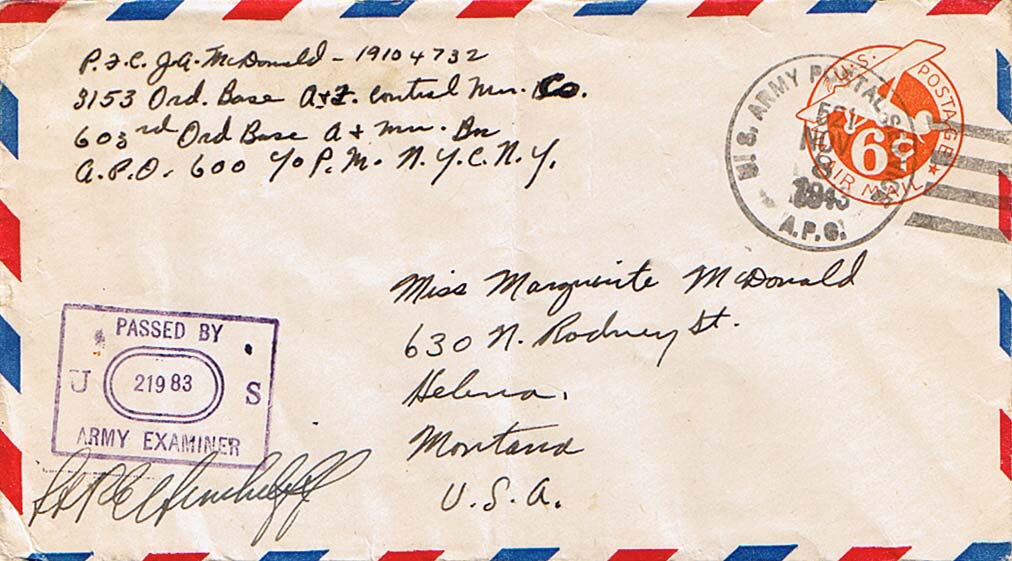 P.F.C. J.A. McDonald - 19104732
3153 Ord. Base A+F. Control Mnr. Co.
603rd Ord Base A + Mn. Bn
A.P.O. 600 % P.M. N.Y.C. N.Y.
U.S. ARMY POSTAL
NOV
8
1943
A.P.O.
U.S. POSTAGE
6¢
AIR MAIL
Miss Marguerite McDonald
630 N. Rodney St.
Helena,
Montana
U.S.A.
PASSED BY
U 21983 S
ARMY EXAMINER